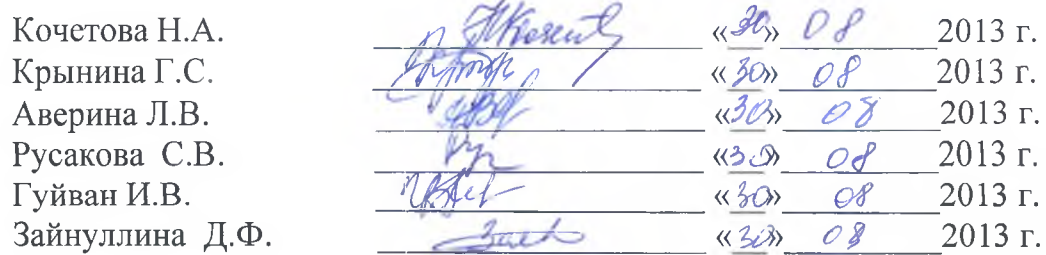 Кочетова Н.А. «30» 08 2013 г.
Крынина Г.С. «30» 08 2013 г.
Аверина Л.В. «30» 08 2013 г.
Русакова С.В. «30» 08 2013 г.
Гуйван И.В. «30» 08 2013 г.
Зайнуллина Д.Ф. «30» 08 2013 г.